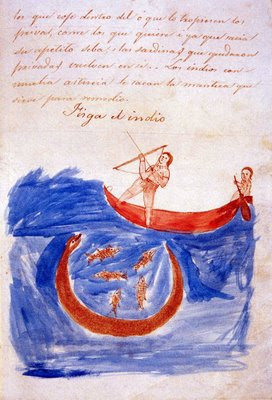 los que cojo dentro del o que le tropieren los
prevas, come los que quiere i ya que sacia
su apetito seba; las sardinas que quedaron
privadas vuelven en si. Los indios con
mucha astucia le sacan la manteca que
sirve para remedio.
Fisga el indio